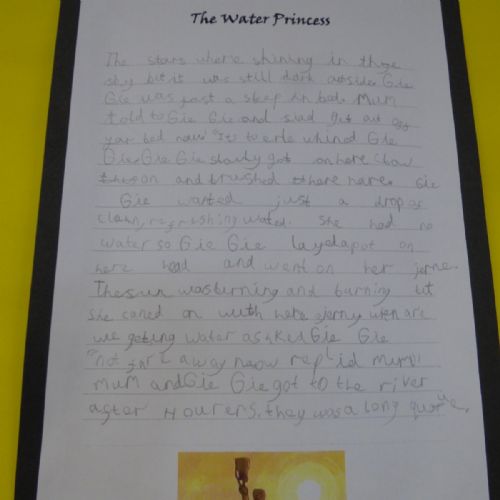 The Water Princess
The stars where shining in the
sky but it was still dark outside. Gie
Gie was fast a sleep in bed. Mum
told to Gie Gie and siad get out off
your bed now "Its to erle whind Gie
Gie. Gie Gie slowly got on here
on and brushed there hare. Gie
Gie wanted just a drop of
clean, refreshing water. She had no
water so Gie Gie layd a pot on
here head and went on her jerne.
The sun was burning and burning but
she cared on with here jerny wen are
we geting water asked Gie Gie
"not far a way naow replid mum"
mum and Gie Gie got to the river
after Hourers. they was a long